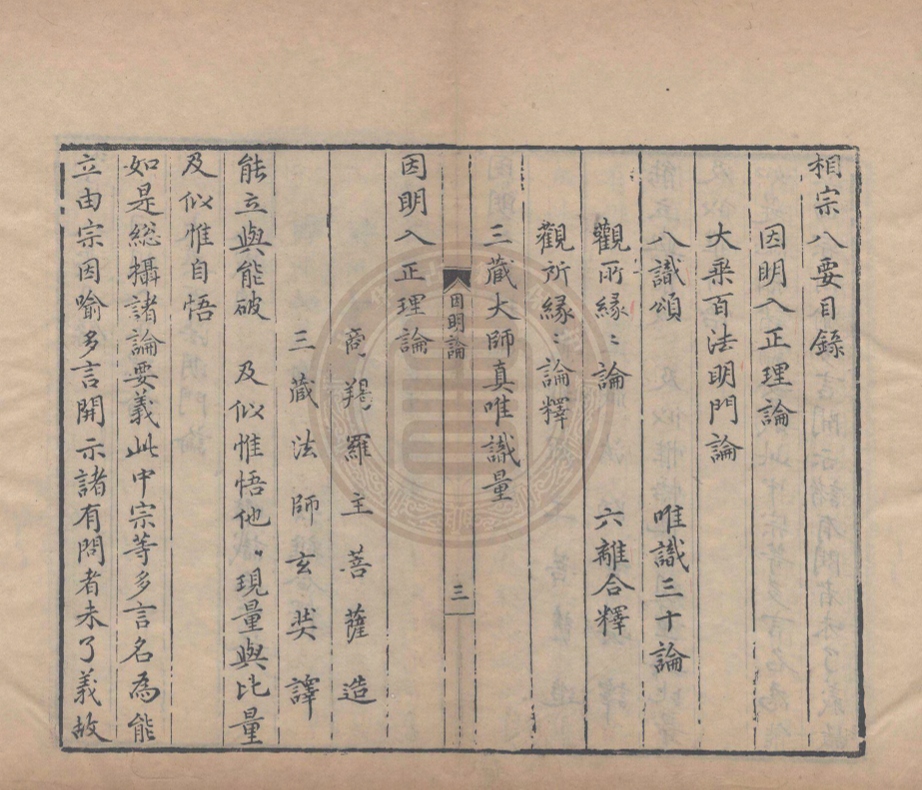 相宗八要目錄
因明入正理論
大乘百法明門論
八識頌　唯識三十論
觀所緣〻論　六離合釋
觀所緣〻論釋
三藏大師真唯識量
因明論
三
因明入正理論
商羯羅主菩薩造
三藏法師玄奘譯
能立與能破　及似惟悟他現量與比量
及似惟自悟
如是総攝諸論要義此中宗等多言名為能
立由宗因喻多言開示諸有問者未了義故